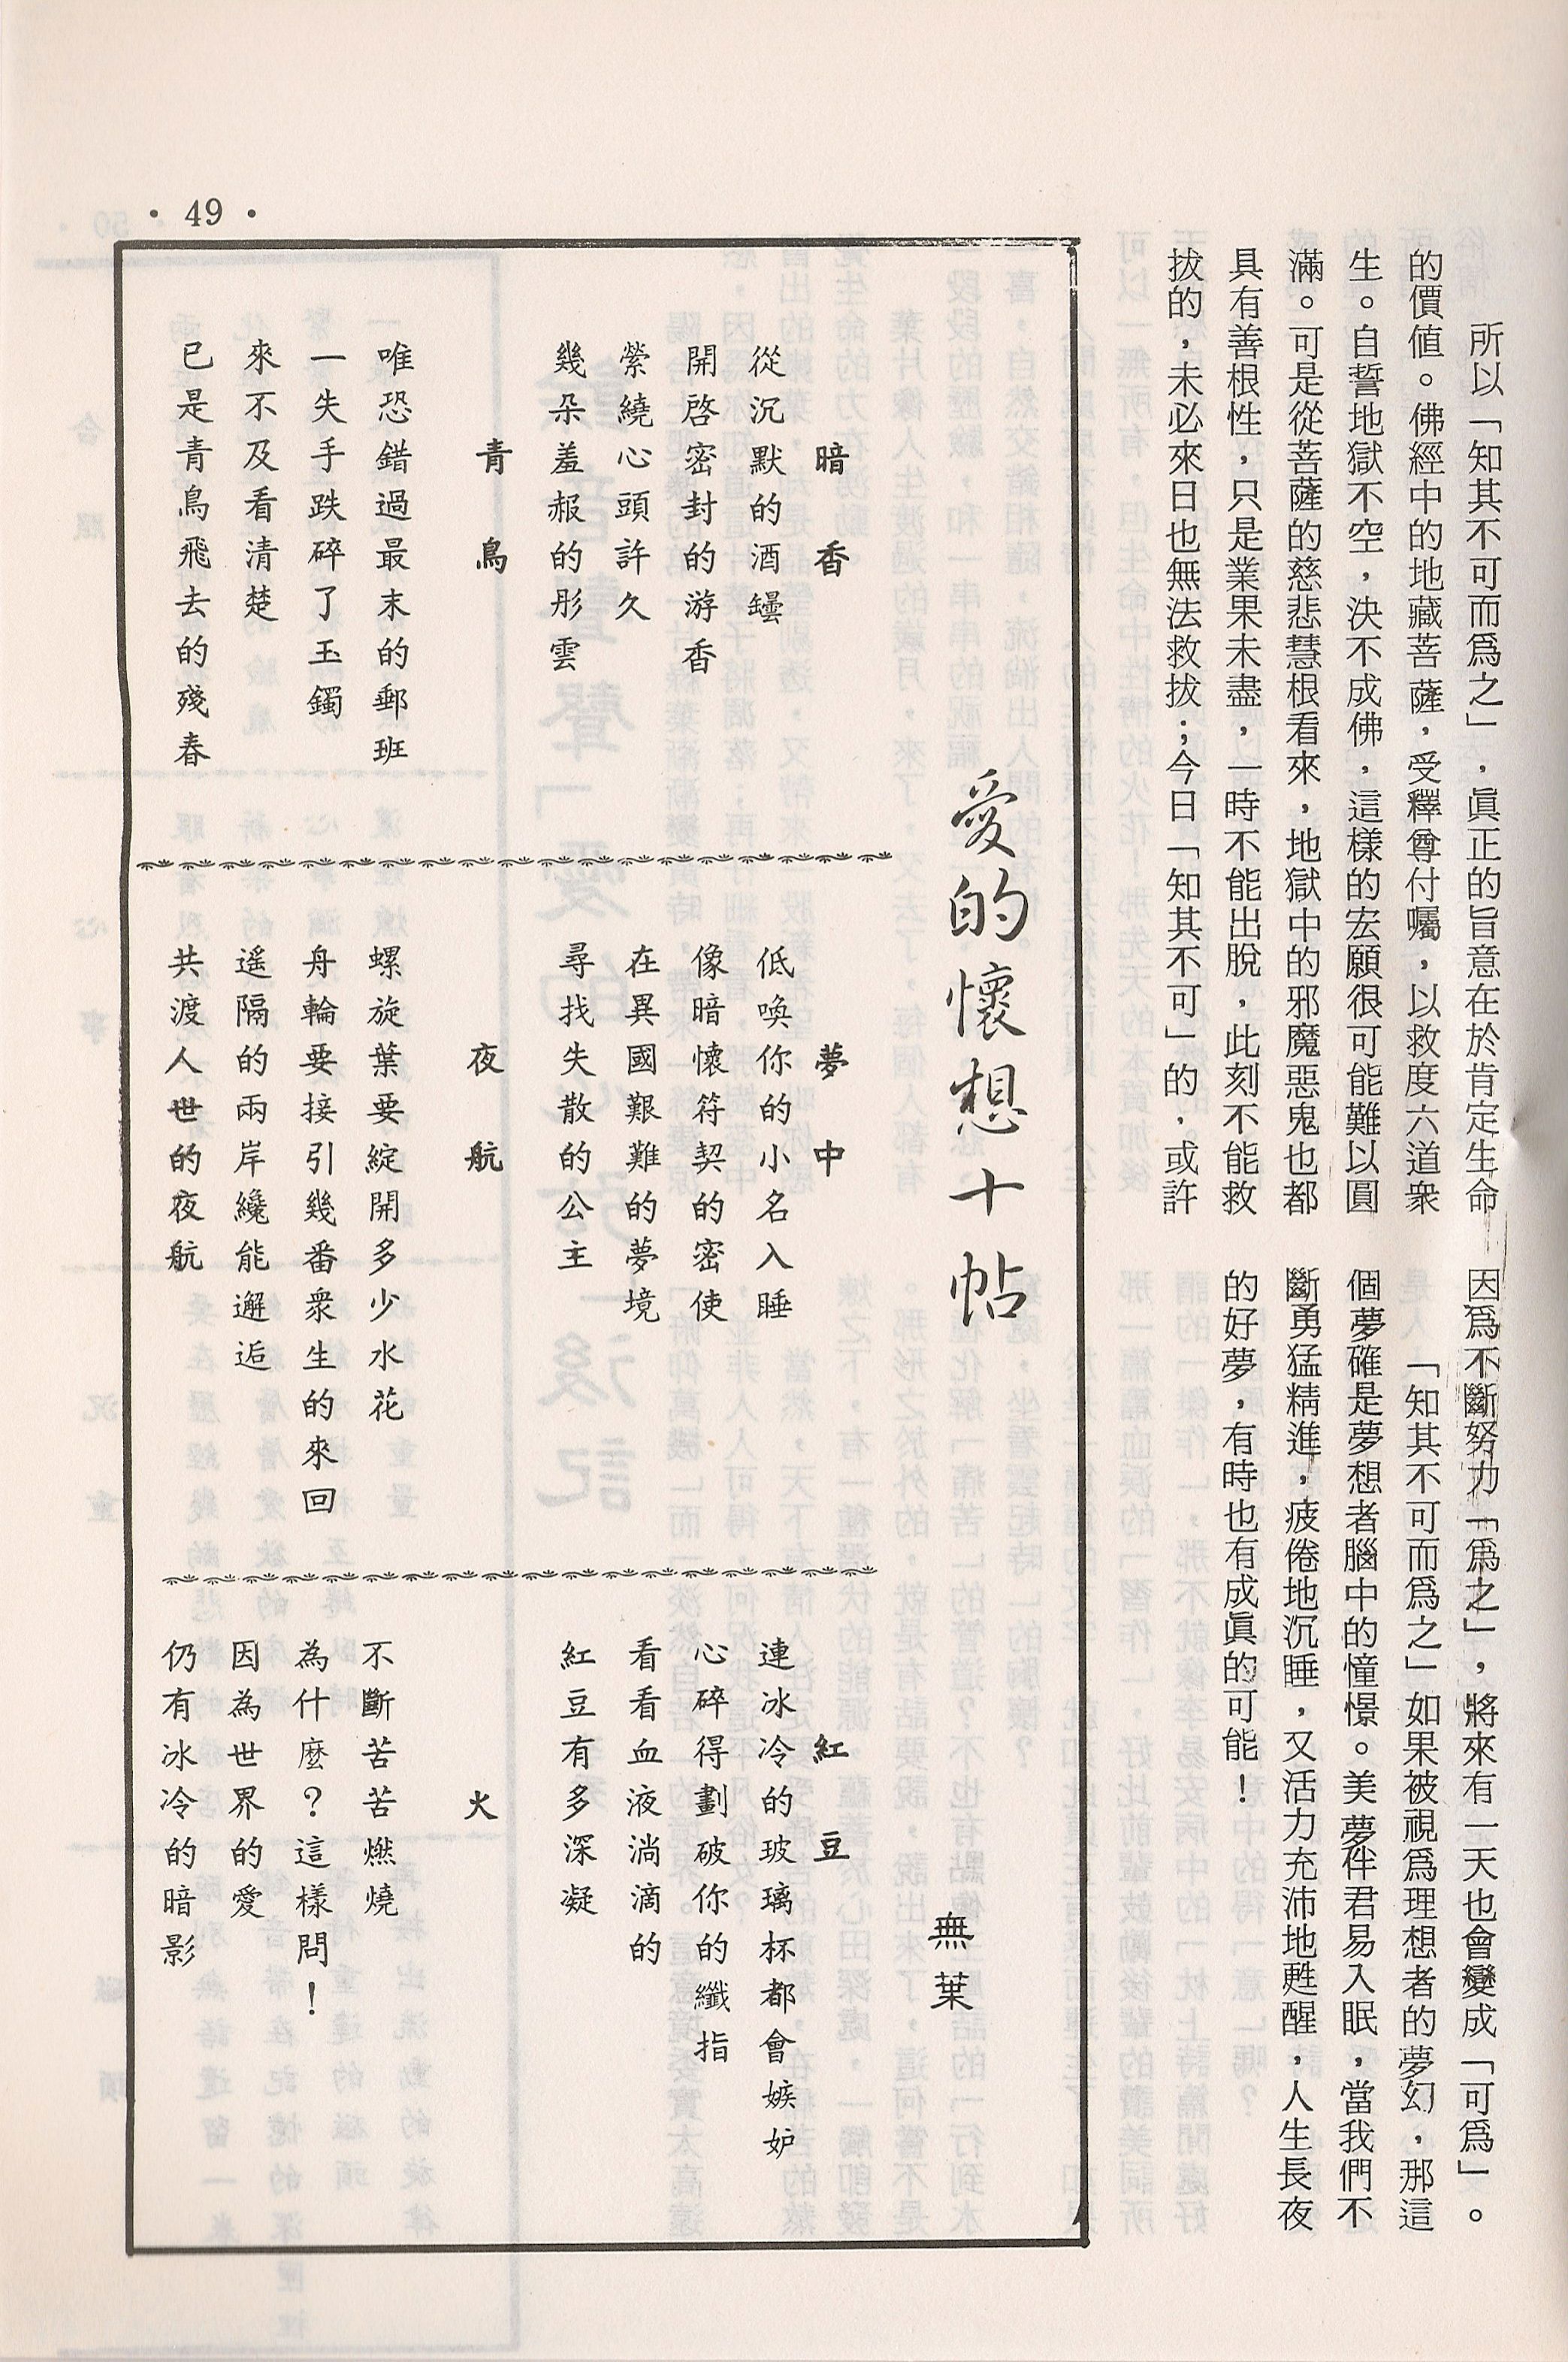 • 49 •
所以「知其不可而爲之」，眞正的旨意在於肯定生命
的價值。佛經中的地藏菩薩，受釋尊付囑，以救度六道衆
生。自誓地獄不空，決不成佛，這樣的宏願很可能難以圓
滿。可是從菩薩的慈悲慧根看來，地獄中的邪魔惡鬼也都
具有善根性，只是業果未盡，一時不能出脫，此刻不能救
拔的，未必來日也無法救拔；今日「知其不可」的，或許
因爲不斷努力「爲之」，將來有一天也會變成「可爲」。
「知其不可而爲之」如果被視爲理想者的夢幻，那這
個夢確是夢想者腦中的憧憬。美夢伴君易入眠，當我們不
斷勇猛精進，疲倦地沉睡，又活力充沛地甦醒，人生長夜
的好夢，有時也有成眞的可能！
愛的懷想十帖
無葉
暗香
從沉默的酒罎
開啓密封的游香
縈繞心頭許久
幾朵羞赧的彤雲
青鳥
唯恐錯過最末的郵班
一失手跌碎了玉鐲
來不及看清楚
已是青鳥飛去的殘春
夢中
低喚你的小名入睡
像暗懷符契的密使
在異國艱難的夢境
尋找失散的公主
夜航
螺旋葉要綻開多少水花
舟輪要接引幾番衆生的來回
遥隔的兩岸纔能邂逅
共渡人世的夜航
紅豆
連冰冷的玻璃杯都會嫉妒
心碎得劃破你的纖指
看看血液淌滴的
紅豆有多深凝
火
不斷苦苦燃燒
為什麼？這樣問！
因為世界的愛
仍有冰冷的暗影